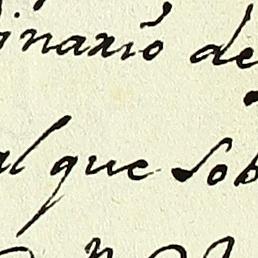 inaxio de
al que sob